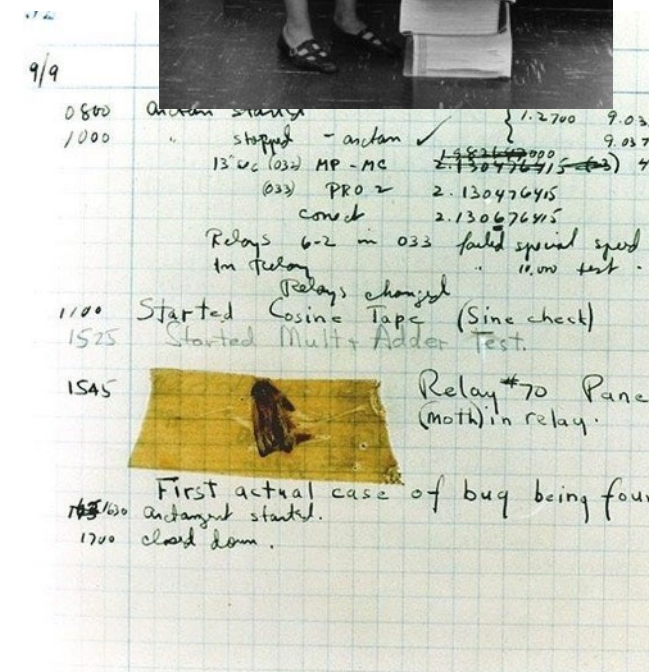 9/9
0800 arctan started { 1.2700 9.03
1000 " stopped - arctan ✓ 9.037
13"uc (032) MP - MC 2.130476415
(033) PRO 2 2.130476415
correct 2.130676415
Relays 6-2 in 033 failed special speed
In Relay " 10,000 test.
Relays changed
1100 Started Cosine Tape (Sine check)
1525 Started Mult + Adder Test.
1545 Relay #70 Pane
(moth) in relay.
First actual case of bug being foun
1630 arctangent started.
1700 closed down.